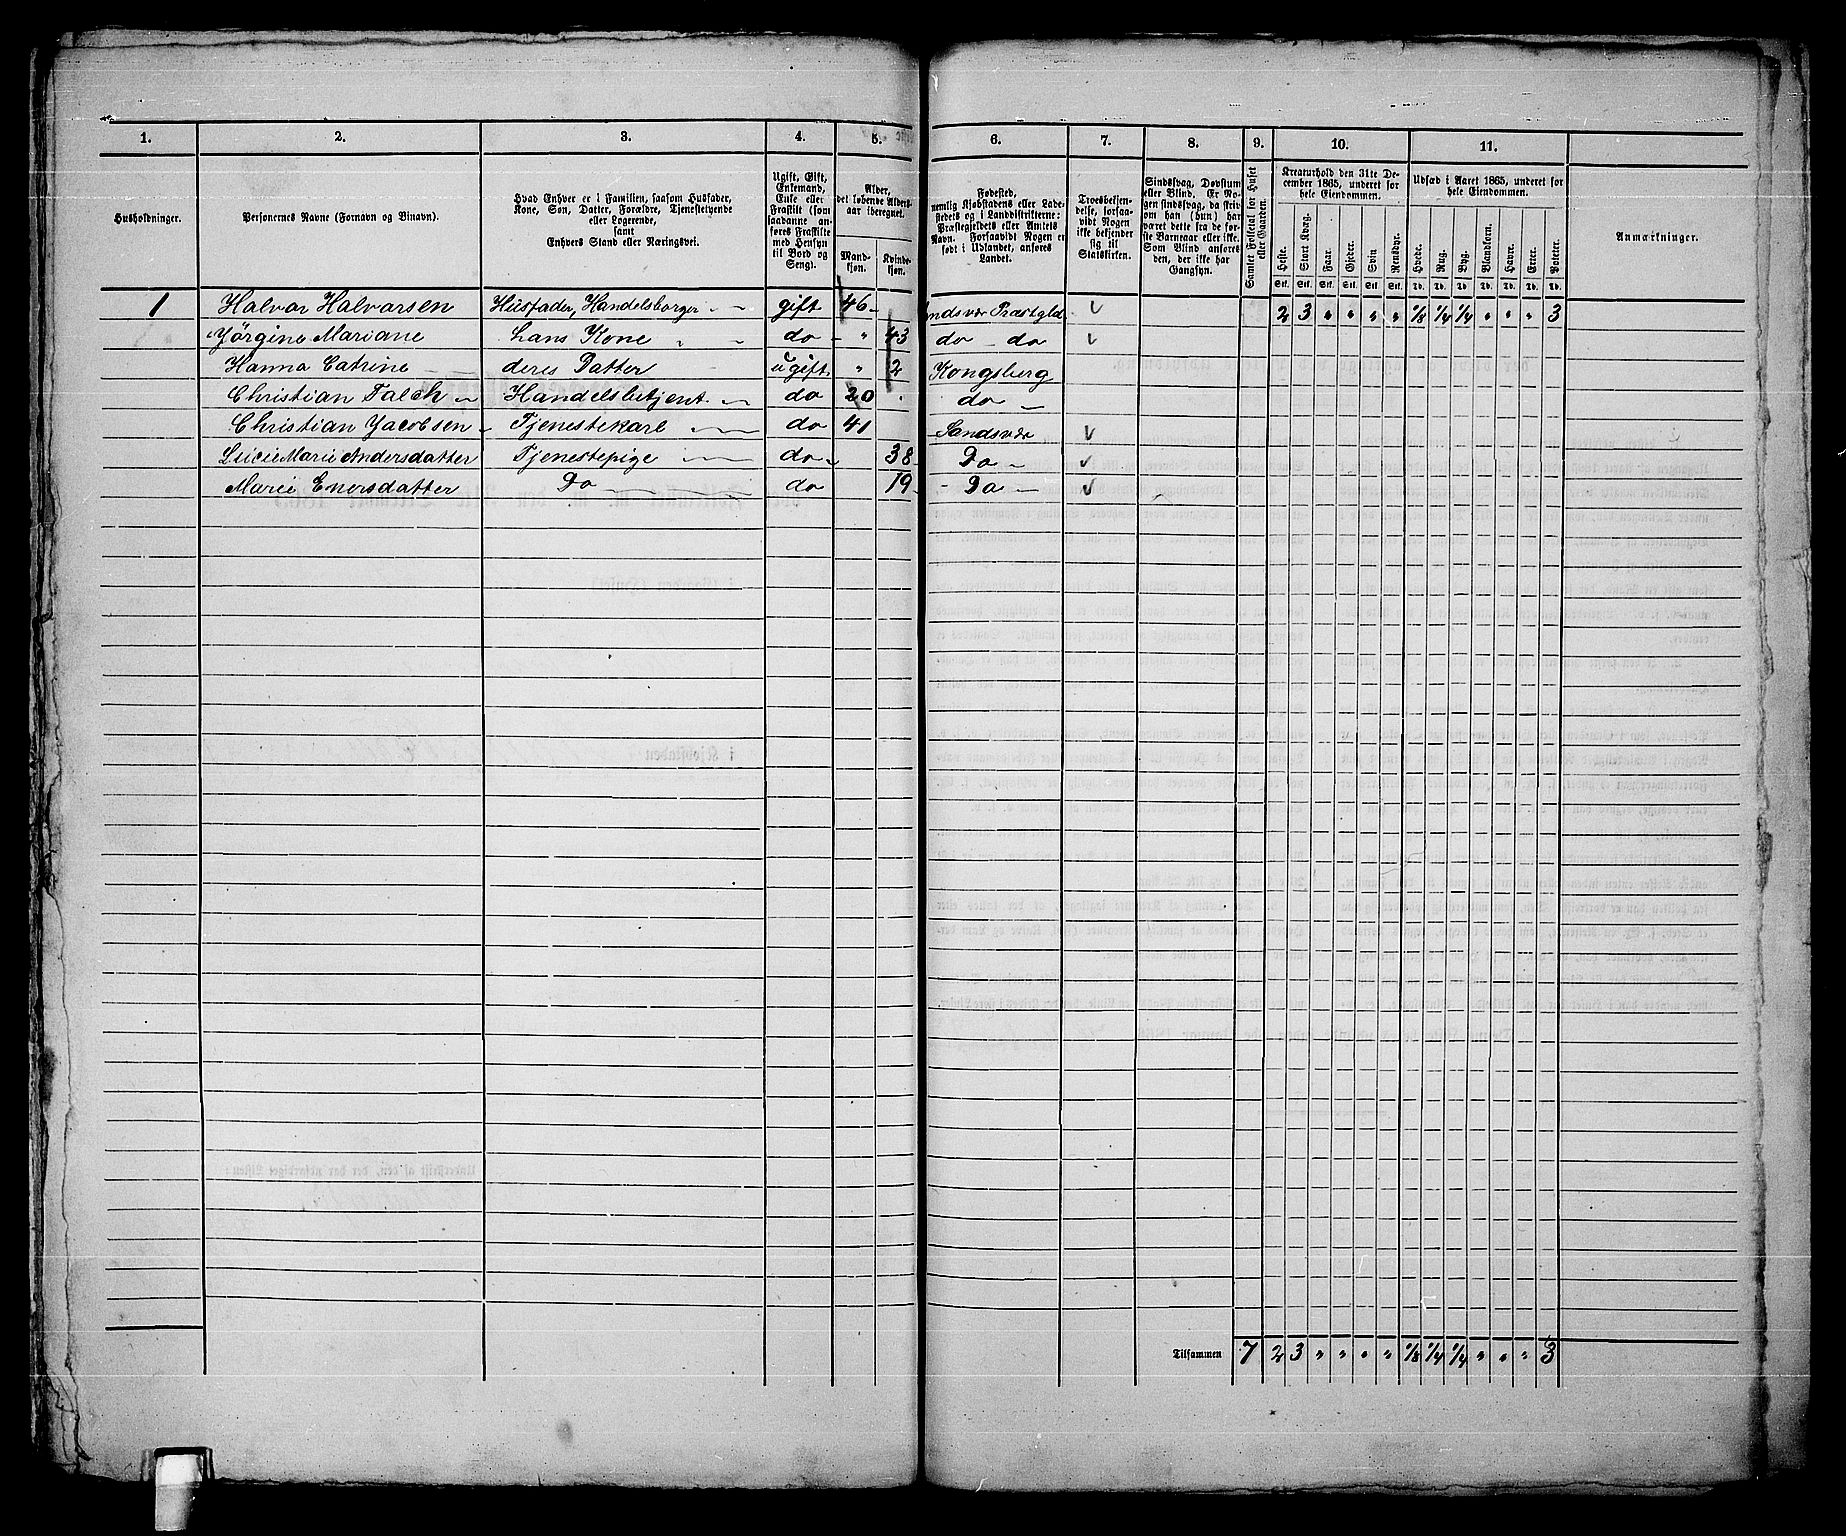 1. 2. 3. 4. 5. 6. 7. 8. 9. 10. 11.
Husholdninger.
Personernes Navne (Fornavn og Binavn).
Hvad Enhver er i Familien, saasom Husfader,
Kone, Søn, Datter, Forældre, Tjenestetyende
eller Logerende,
samt
Enhvers Stand eller Næringsvei.
Ugift, Gift,
Enkemand,
Enke eller
Fraskilt (som
saadanne an-
føres Fraskilte
med Hensyn
til Bord og
Seng).
Alder,
det løbende Alders-
aar iberegnet.
Mand-
kjøn.
Kvinde-
kjøn.
Fødested,
nemlig Kjøbstadens eller Lade-
stedets og i Landdistrikterne:
Præstegjeldets eller Amtets
Navn. Forsaavidt Nogen er
født i Udlandet, anføres
Landet.
Troesbekjen-
delse, forsaa-
vidt Nogen
ikke bekjender
sig til
Statskirken.
Sindssvag, Døvstum
eller Blind. Er No-
gen sindssvag, da skriv
om han (hun) har
været dette fra de før-
ste Barneaar eller ikke.
Som Blind anføres
den, der ikke har
Gangsyn.
Samlet Folketal for Huset
eller Gaarden.
Kreaturhold den 31te De-
cember 1865, underet for
hele Eiendommen.
Heste. Stort Kvæg. Faar. Gjeder. Svin Rensdyr.
Stk. Stk. Stk. Stk. Stk. Stk.
Udsæd i Aaret 1865, underet for
hele Eiendommen.
Hvede. Rug. Byg. Blandkorn. Havre. Erter. Poteter.
Td. Td. Td. Td. Td. Td. Td.
Anmærkninger.
1 Halvar Halvarsen Husfader, Handelsborger gift 46 Præstgld 2 3 " " " " 1/8 1/4 1/4 " " " 3
Jörgine Mariane hans Kone do " 43 do do
Hanna Catrine deres Datter ugift " 2 Kongsberg
Christian Falch Handelsbetjent do 20 do
Christian Jacobsen Tjenestekarl do 41 Sandsvær
Lucie Marie Andersdatter Tjenestepige do 38 Do
Marie Enersdatter Do do 19 Do
Tilsammen 7 2 3 " " " " 1/8 1/4 1/4 " " " 3